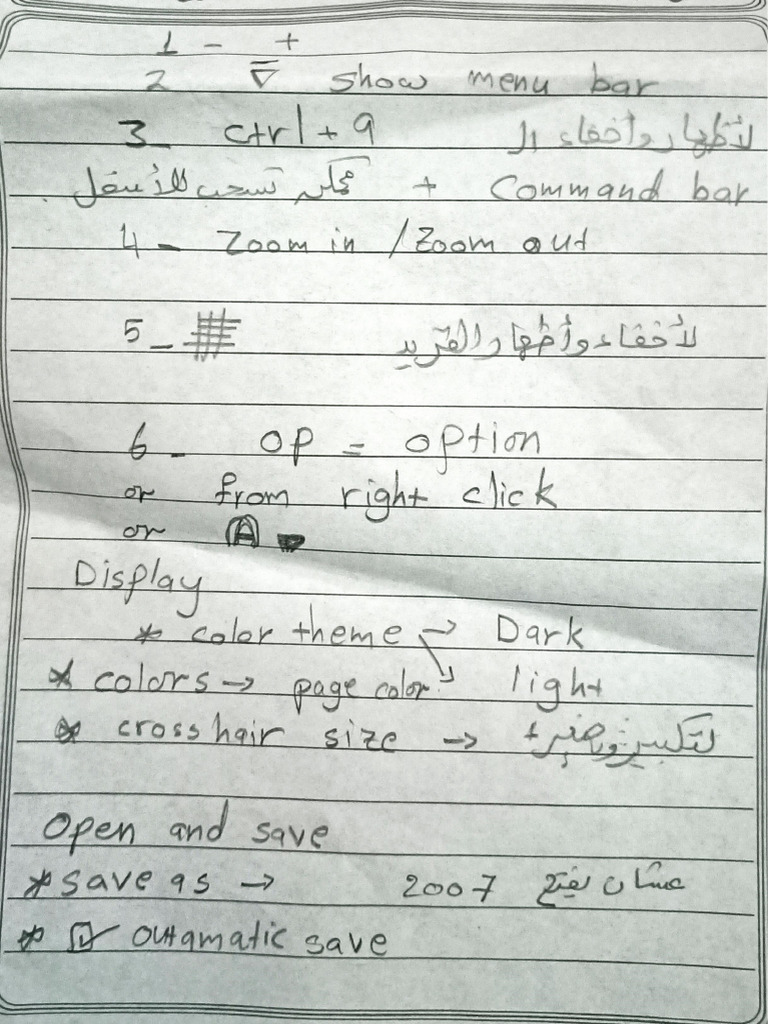 1 - +
2 ▽ show menu bar
3- ctrl + 9 لأظهار وأخفاء ال
Command bar + ممكن تسحب للأسفل .
4 - Zoom in / Zoom out
5 - لأخفاء وأظهار القريد
6 - op = option
or from right click
or A
Display
* color theme → Dark
light
* colors → page color
* cross hair size → لتكبير وتصغير +
Open and save
* save as → 2007 عشان يفتح
* ☑ outamatic save